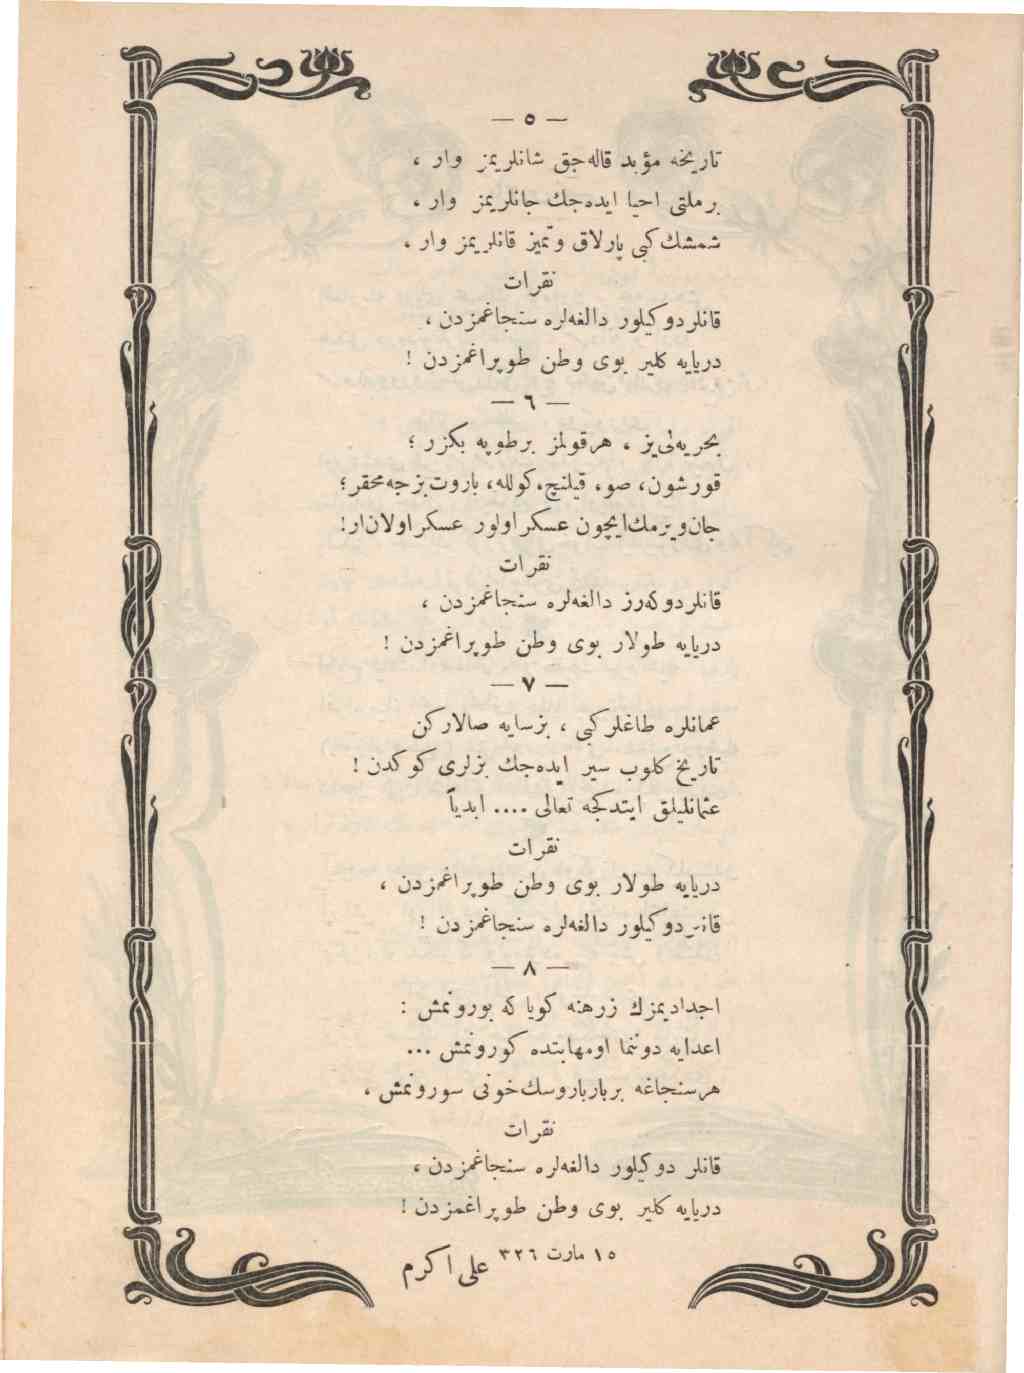 — ٥ —
تاريخه مؤبد قاله‌جق شانلريمز وار ،
برملتى احيا ايده‌جك جانلريمز وار ،
شمشك كبى پارلاق وتميز قانلريمز وار ،
نقرات
قانلر دوكيلور دالغه‌لره سنجاغمزدن ،
دريايه كلير بوى وطن طوپراغمزدن !
— ٦ —
بحريه‌لى‌يز ، هرقولمز برطوپه بكزر ؛
قورشون، صو، قيلنچ، كولله، باروت بزجه محقر؛
جان ويرمك ايچون عسكر اولور عسكر اولانار!
نقرات
قانلر دوكه‌رز دالغه‌لره سنجاغمزدن ،
دريايه طولار بوى وطن طوپراغمزدن !
— ٧ —
عمانلره طاغلر كبى ، بز سايه صالاركن
تاريخ كلوب سير ايده‌جك بزلرى كوكدن !
عثمانليلق ايتدكجه تعالى .... ابدياً
نقرات
دريايه طولار بوى وطن طوپراغمزدن ،
قانلر دوكيلور دالغه‌لره سنجاغمزدن !
— ٨ —
اجداديمزك زرهنه كويا كه بورونمش :
اعدايه دوننما اومهابتده كورونمش ...
هرسنجاغه بربارباروسك خونى سورونمش ،
نقرات
قانلر دوكيلور دالغه‌لره سنجاغمزدن ،
دريايه كلير بوى وطن طوپراغمزدن !
١٥ مارت ٣٢٦
على اكرم